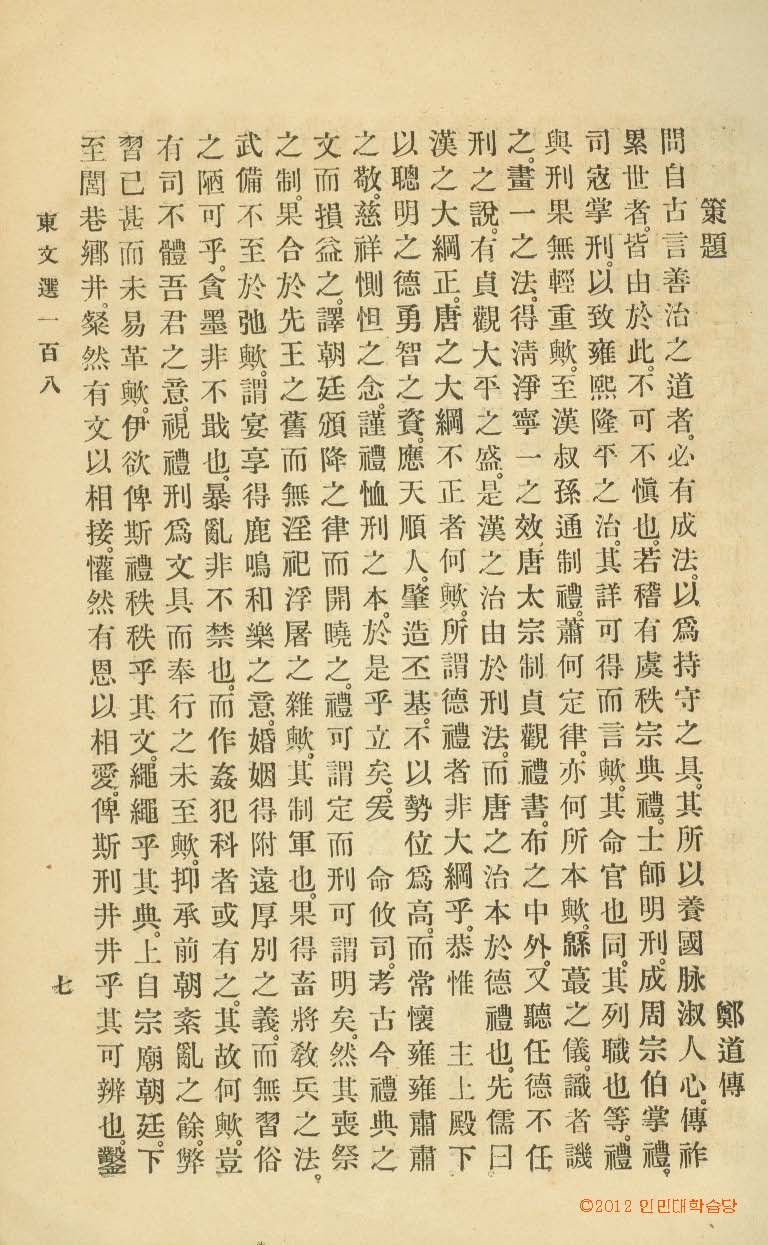 策題
鄭道傳
問自古言善治之道者。必有成法。以爲持守之具。其所以養國脉淑人心。傳祚
累世者。皆由於此。不可不愼也。若稽有虞秩宗典禮。士師明刑。成周宗伯掌禮。
司寇掌刑。以致雍熙隆平之治。其詳可得而言歟。其命官也同。其列職也等。禮
與刑果無輕重歟。至漢叔孫通制禮。蕭何定律。亦何所本歟。緜蕞之儀。識者譏
之。畫一之法。得淸淨寧一之效。唐太宗制貞觀禮書。布之中外。又聽任德不任
刑之說。有貞觀大平之盛。是漢之治由於刑法。而唐之治本於德禮也。先儒曰
漢之大綱正。唐之大綱不正者何歟。所謂德禮者非大綱乎。恭惟 主上殿下
以聰明之德勇智之資。應天順人。肇造丕基。不以勢位爲高。而常懷雍雍肅肅
之敬。慈祥惻怛之念。謹禮恤刑之本。於是乎立矣。爰 命攸司。考古今禮典之
文而損益之。譯朝廷頒降之律而開曉之。禮可謂定而刑可謂明矣。然其喪祭
之制。果合於先王之舊而無淫祀浮屠之雜歟。其制軍也。果得畜將敎兵之法。
武備不至於弛歟。謂宴享得鹿鳴和樂之意。婚姻得附遠厚別之義。而無習俗
之陋可乎。貪墨非不戢也。暴亂非不禁也。而作姦犯科者或有之。其故何歟。豈
有司不體吾君之意。視禮刑爲文具而奉行之未至歟。抑承前朝紊亂之餘。弊
習已甚而未易革歟。伊欲俾斯禮秩秩乎其文。繩繩乎其典。上自宗廟朝廷。下
至閭巷鄕井。粲然有文以相接。懽然有恩以相愛。俾斯刑井井乎其可辨也。鑿
東文選一百八
七
©2012 인민대학습당